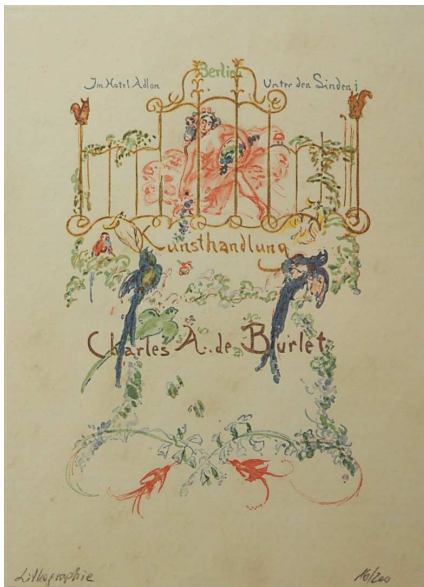 Berlin
Im Hotel Adlon Unter den Linden 1
Kunsthandlung
Charles A. de Burlet
Lithographie 16/200